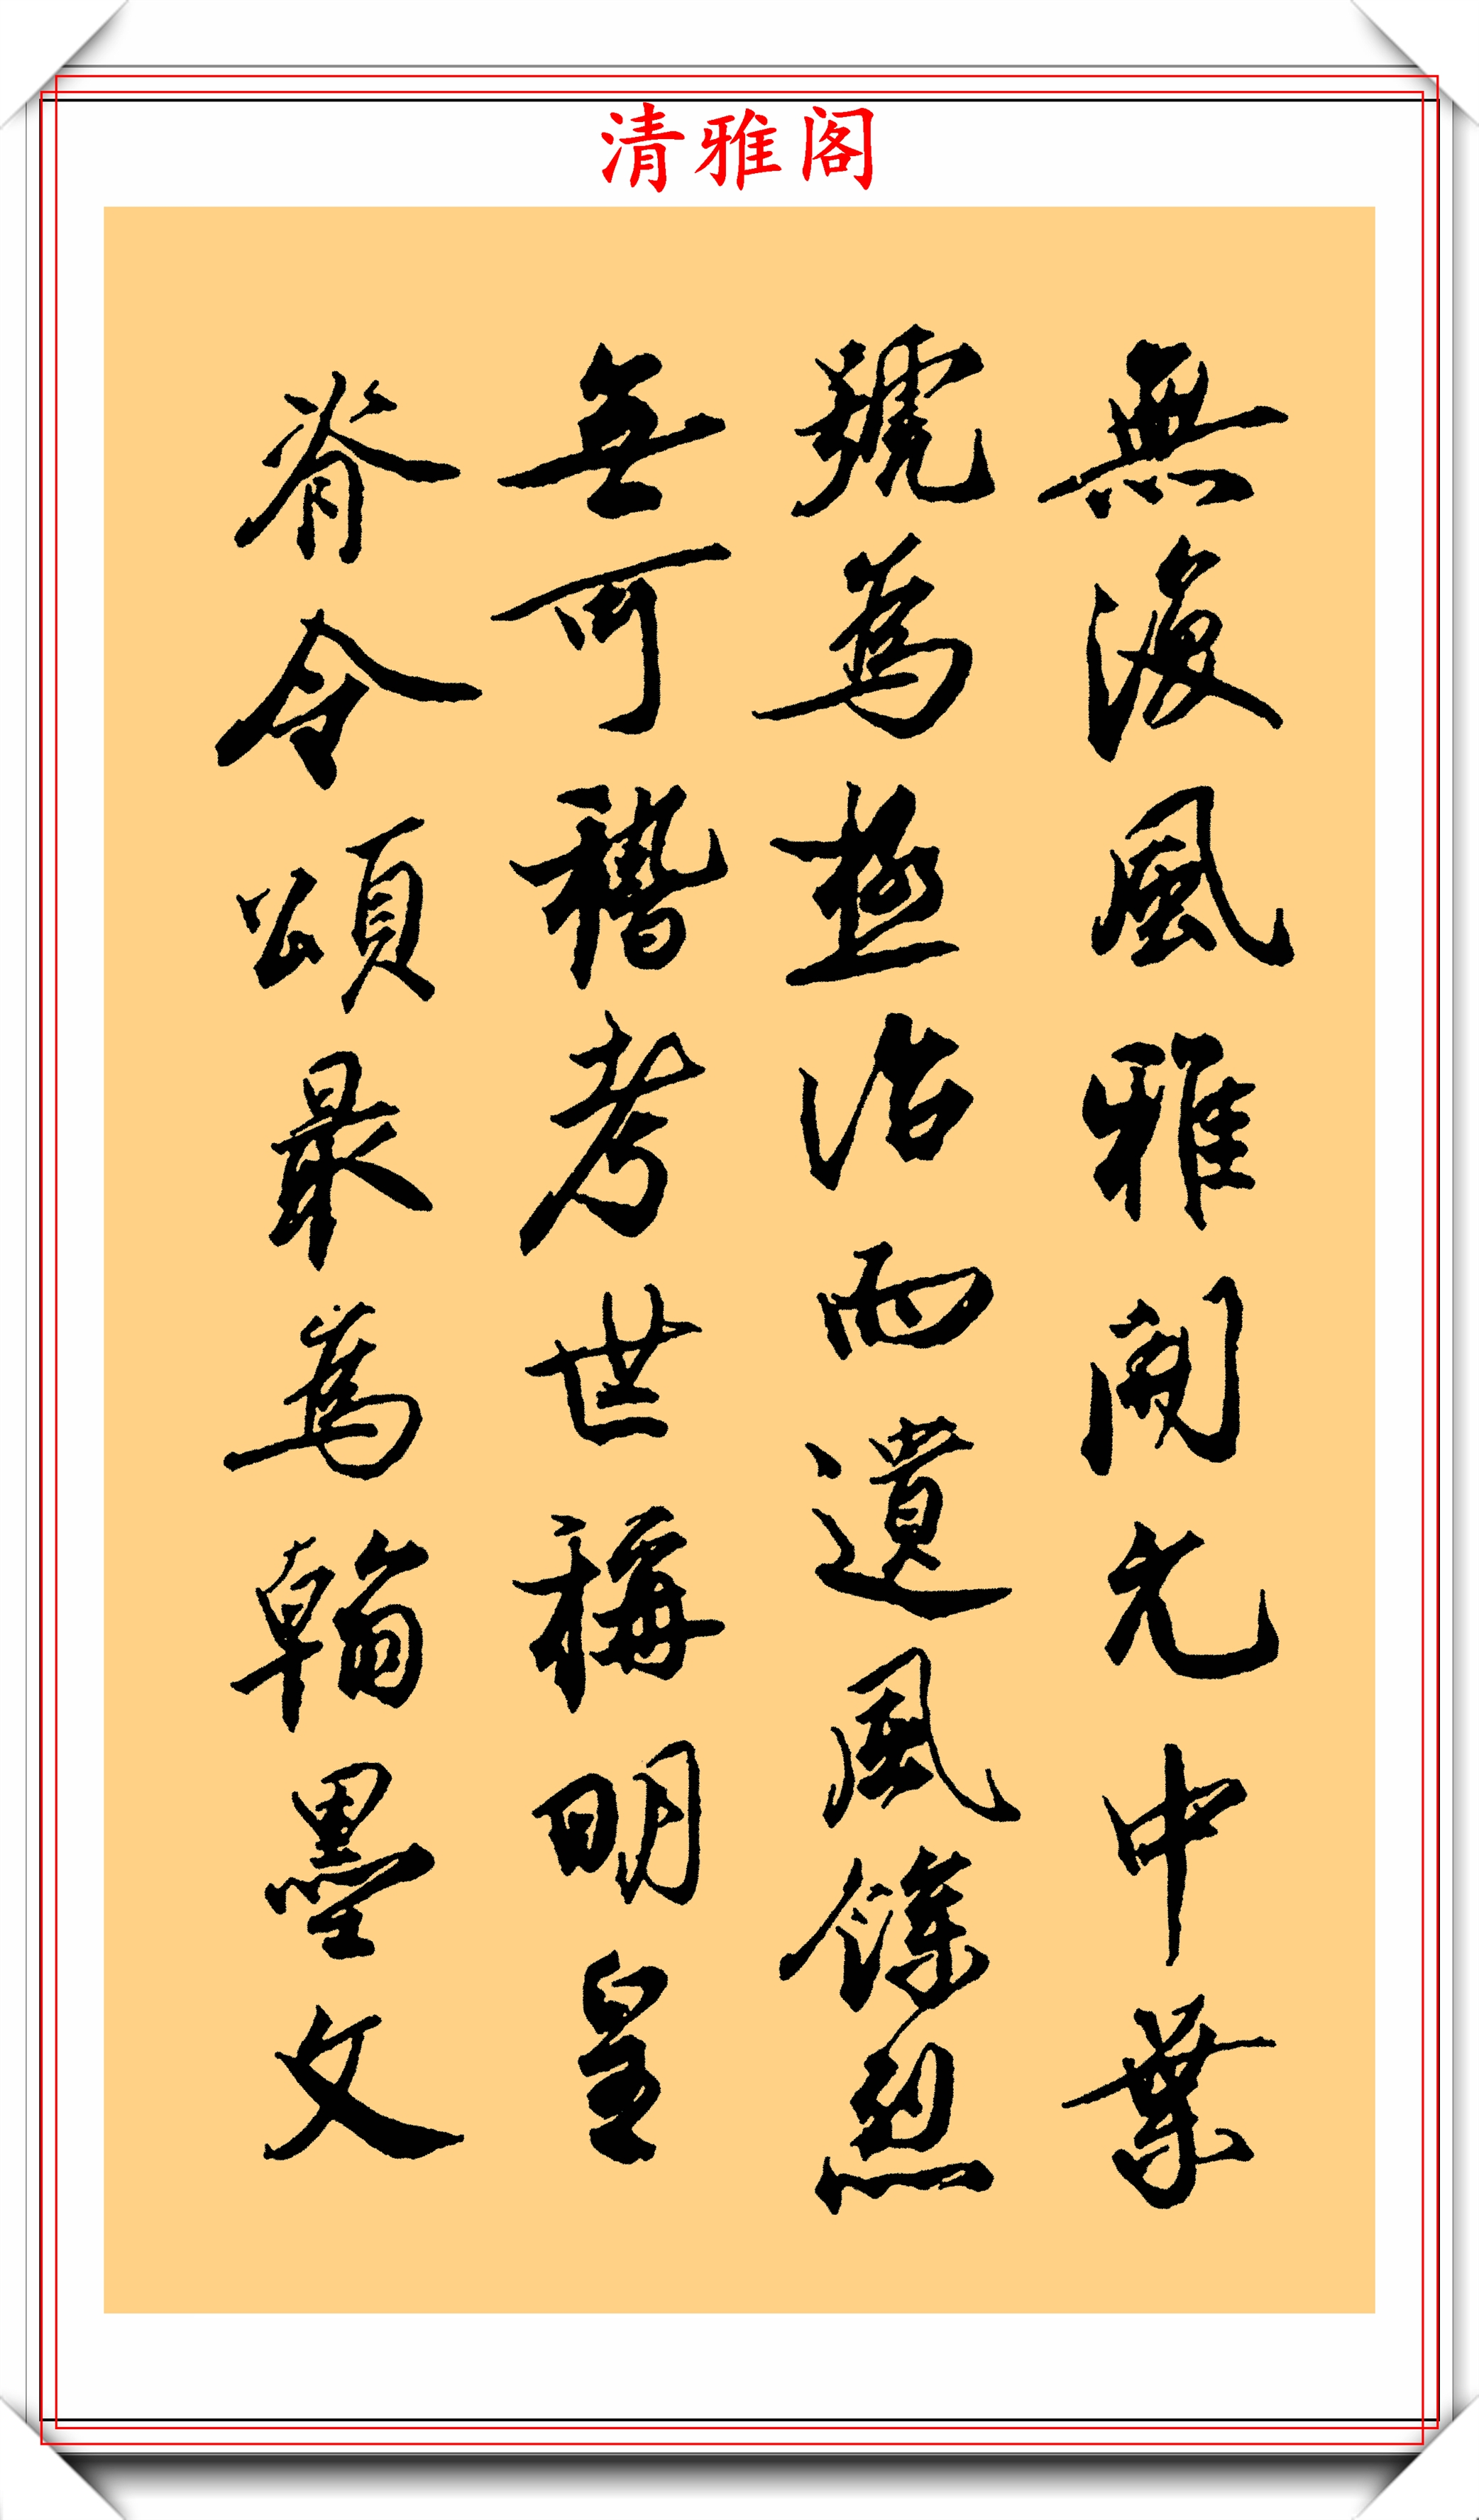 清雅阁
無復風雅開元中業
號為盛治而遺風餘烈
無可稽考世稱明皇
脊令頌最為翰墨文